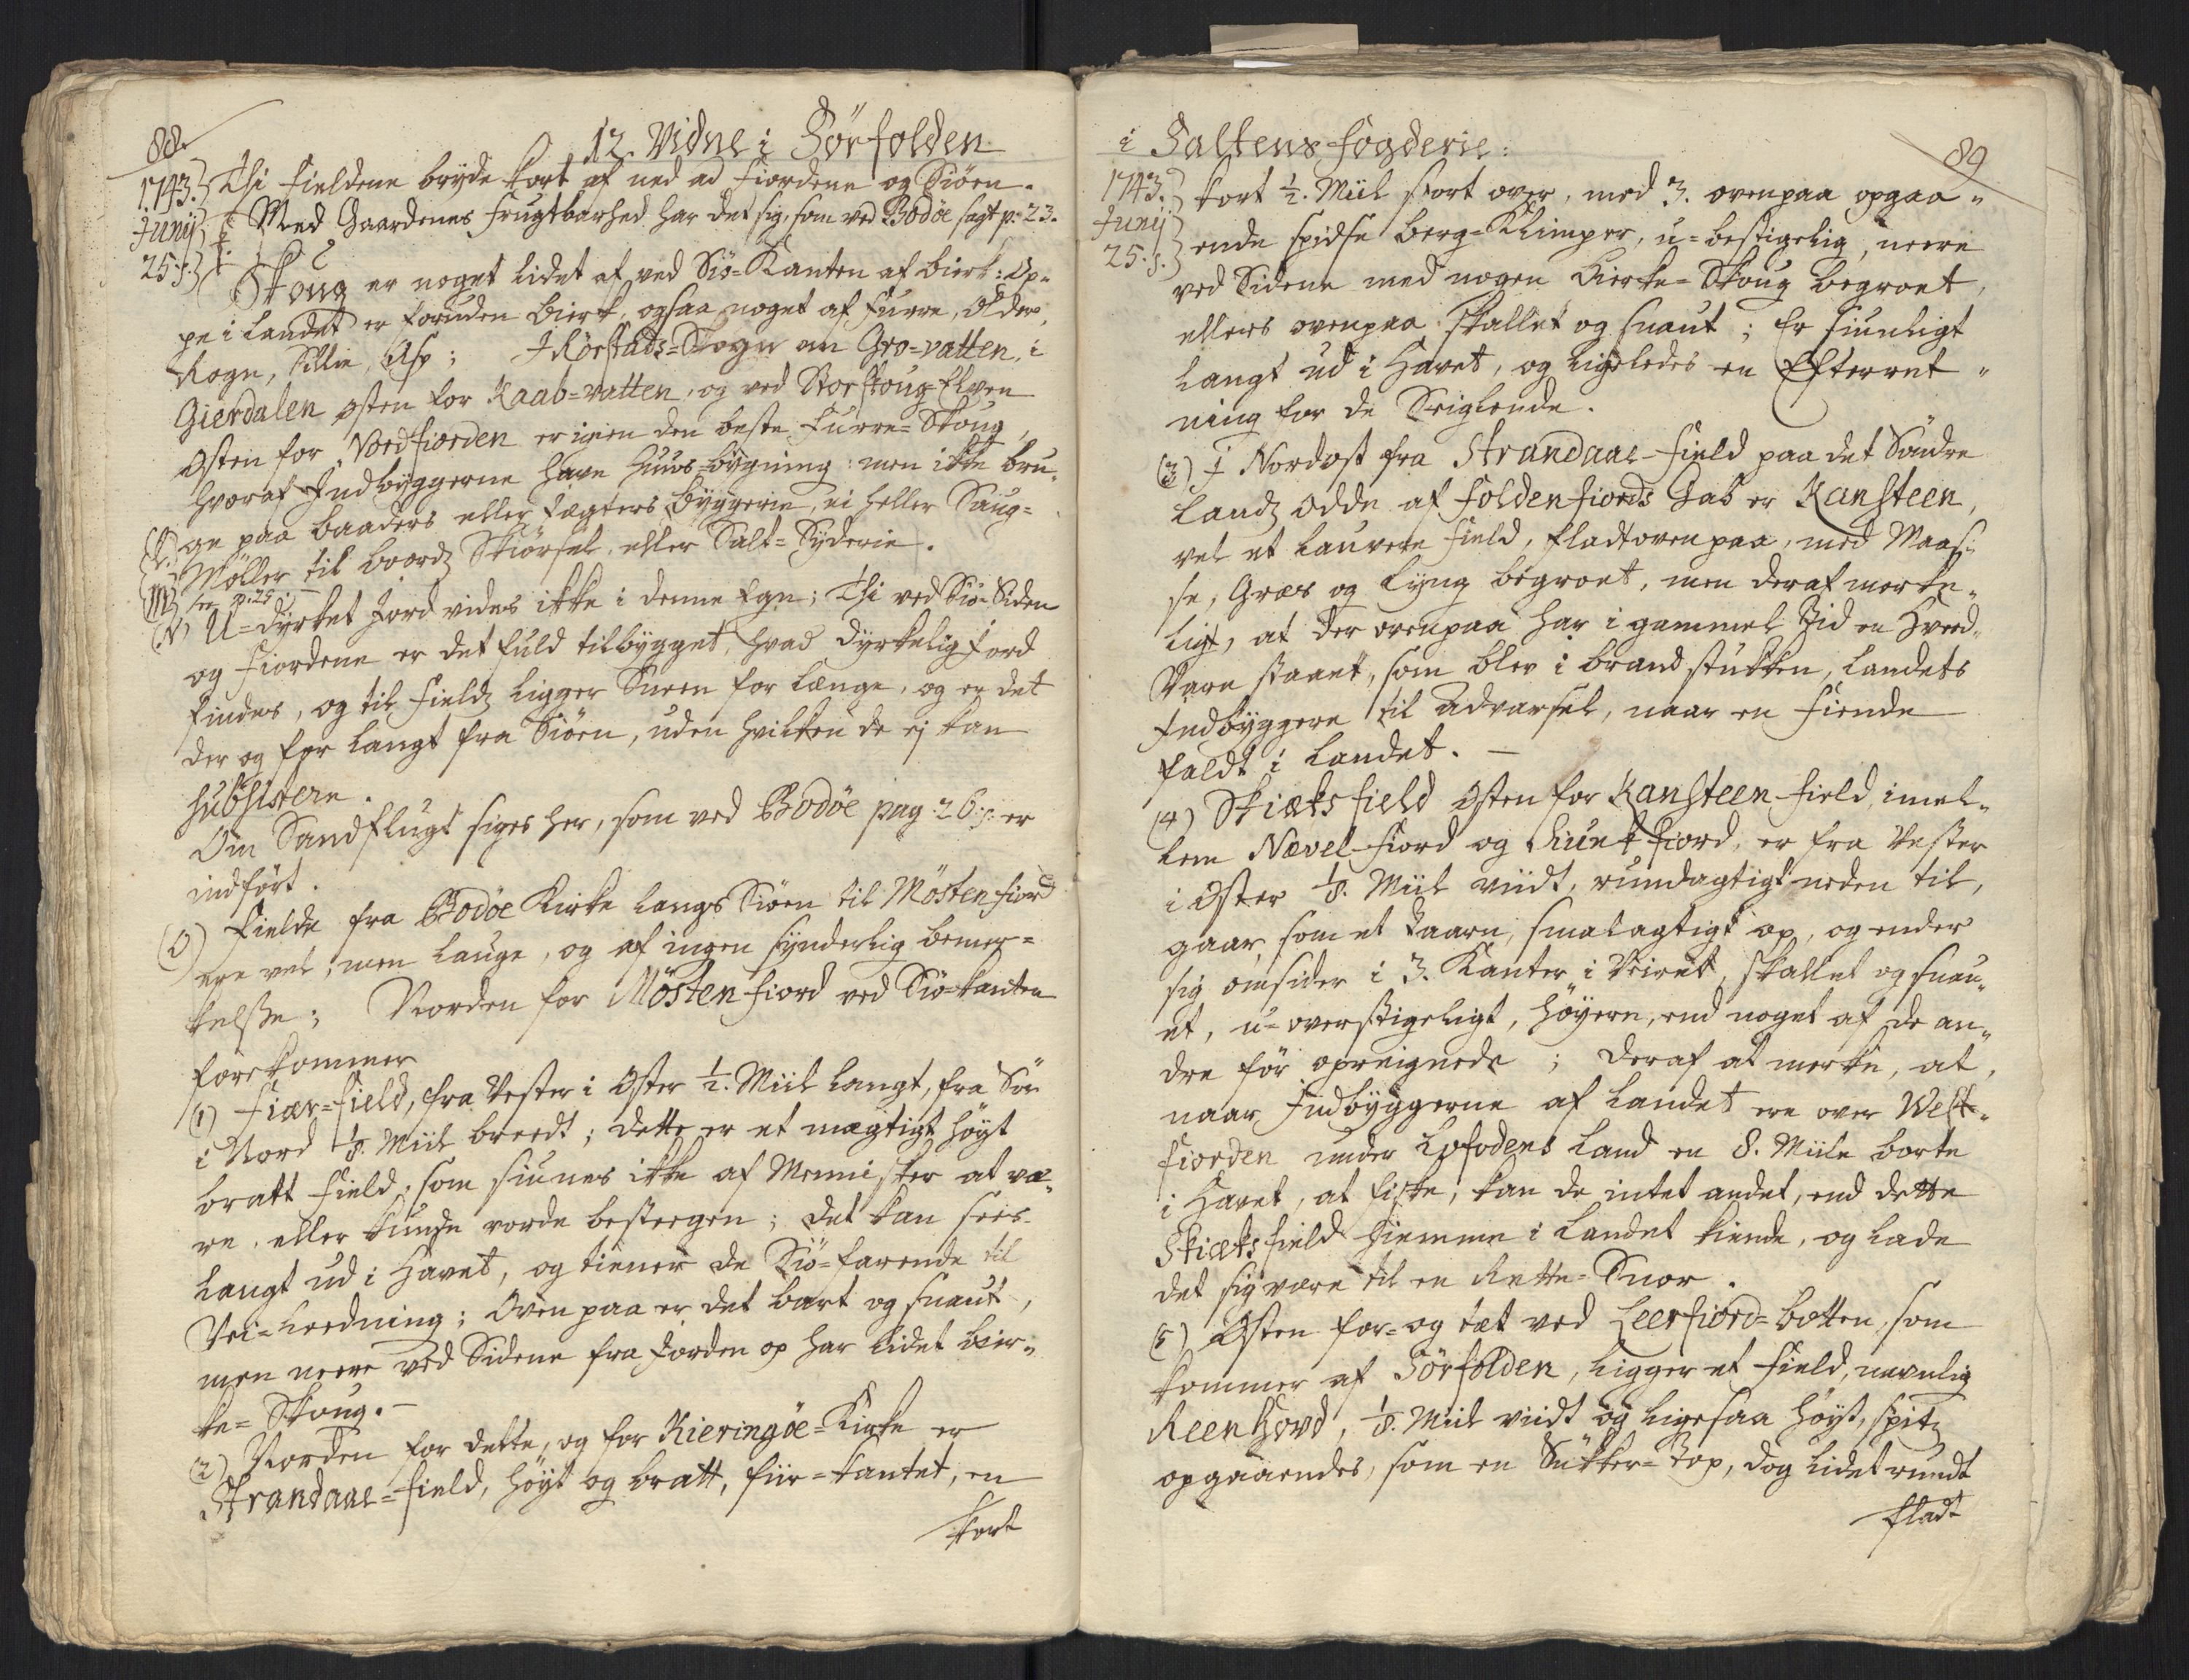 88.
12. Vidne i Sörfolden
1743. Junij 25. s.
Thi Fieldene bryde kort af ned ad Fiordene og Siöen.
Med Gaardenes Frugtbarhed har det sig, som ved Bodöe sagt p. 23.
Skoug er noget lidet af, ved Siö-Kanten af Bierk: Op-
pe i Landet er foruden Bierk, ogsaa noget af Furre, Older,
Rogn, Sillie, Asp; I Rörstads-Sogn om Gro-vatten, i
Gierdalen Østen for Kaab-vatten, og ved Storskoug-Elven
Østen for Nordfiorden er igien den beste Furre-Skoug,
hvoraf Indbyggerne have Huus-bygning: men ikke bru-
ge paa baaders eller Jægters byggerie, ei heller Saug-
Møller til bords Skiörsel, eller Salt-Syderie.
(M) see p. 25.
(N) U-dyrket Jord vides ikke i denne Egn; Thi ved Siö-Siden
og Fiordene er det fuld tilbygget, hvad dyrkelig Jord
findes, og til Fields ligger Sneen for længe, og er det
der og for langt fra Siöen, uden hvilken de ej kan
subsistere.
Om Sandflugt siges her, som ved Bodöe pag. 26. s. er
indført.
(O) Fielde fra Bodöe Kirke langs Siöen til Mösten fiord
ere vel, men lauge, og af ingen synderlig bemer-
kelsse; Norden for Mösten fiord ved Siö-kanten
forekommer
(1) Fiær-Field, fra Vester i Øster ½. Miil langt, fra Sör
i Nord ⅛. Miil breedt; dette er et mægtigt høyt
bratt Field, som siunes ikke af Mennisker at væ-
re, eller kunde vorde besteegen; det kan sees
langt ud i Havet, og tiener de Siö-farende til
Vei-Leedning; Oven paa er det bart og snaut,
men neere ved Sidene fra Jorden op har lidet Bier-
ke-Skoug.
(2) Norden for dette, og for Kieringöe-Kirke er
Strandaae-Field, høyt og bratt, fiir-kantet, en
kort
i Saltens Fogderie:
89
1743. Junij 25. s.
kort ½. Miil stort over, med 3. ovenpaa opgaa-
ende spidse Berg-Klimper, u-bestigelig, neere
ved Sidene med nogen Bierke-Skoug begroet,
ellers ovenpaa skallet og snaut; Er siunligt
langt ud i Havet, og ligeledes en Efterret-
ning for de Seiglende.
(3) I Nordost fra Strandaae-Field paa det Söndre
Lands Odde af Folden fiords Gab er Kansteen,
vel et lauvere Field, fladt ovenpaa, med Maas-
se, Græs og Lyng begroet, men deraf merke-
ligt, at der ovenpaa har i gammel Tid en Hved-
Vare staaet, som blev i brand stukken, Landets
Indbyggere til Advarsel, naar en Fiende
faldt i Landet.
(4) Skiæks field Østen for Kansteen-Field, imel-
lem Nævel-fiord og Liunk fiord, er fra Vester
i Øster ⅛. Miil viidt, rundagtigt neden til,
gaar, som et Taarn, smalagtigt op, og ender
sig omsider i 3. Kanter i Veiret, skallet og snau-
et, u-overstigeligt, høyere, end noget af de an-
dre før opreignede; deraf at merke, at,
naar Indbyggerne af Landet ere over West-
fiorden under Lofodens Land en 8. Miile borte
i Havet, at fiske, kan de intet andet, end dette
Skiæks field hiemme i Landet kiende, og lade
det sig være til en Rette-Snor.
(5) Østen for- og tæt ved Leerfiord-botten, som
kommer af Sörfolden, ligger et Field, navnlig
Reenhovd, ⅛. Miil viidt og ligesaa høyt, spitz
opgaaendes, som en Sukker-Top, dog lidet rundt
fladt